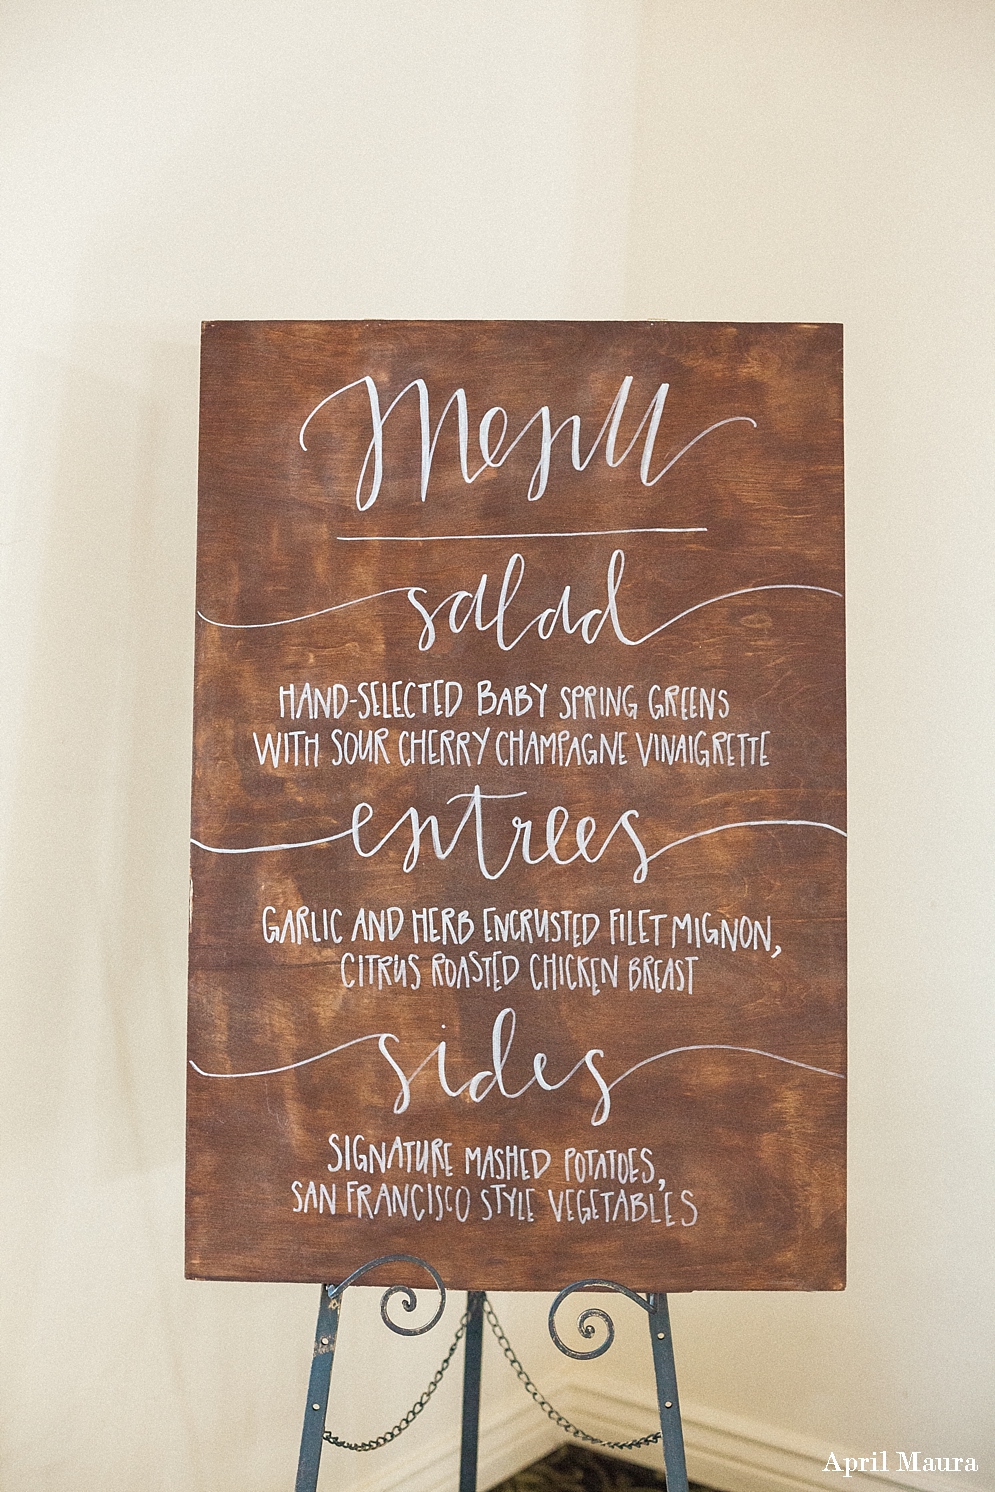 Menu
salad
HAND-SELECTED BABY SPRING GREENS
WITH SOUR CHERRY CHAMPAGNE VINAIGRETTE
entrees
GARLIC AND HERB ENCRUSTED FILET MIGNON,
CITRUS ROASTED CHICKEN BREAST
sides
SIGNATURE MASHED POTATOES,
SAN FRANCISCO STYLE VEGETABLES
April Maura